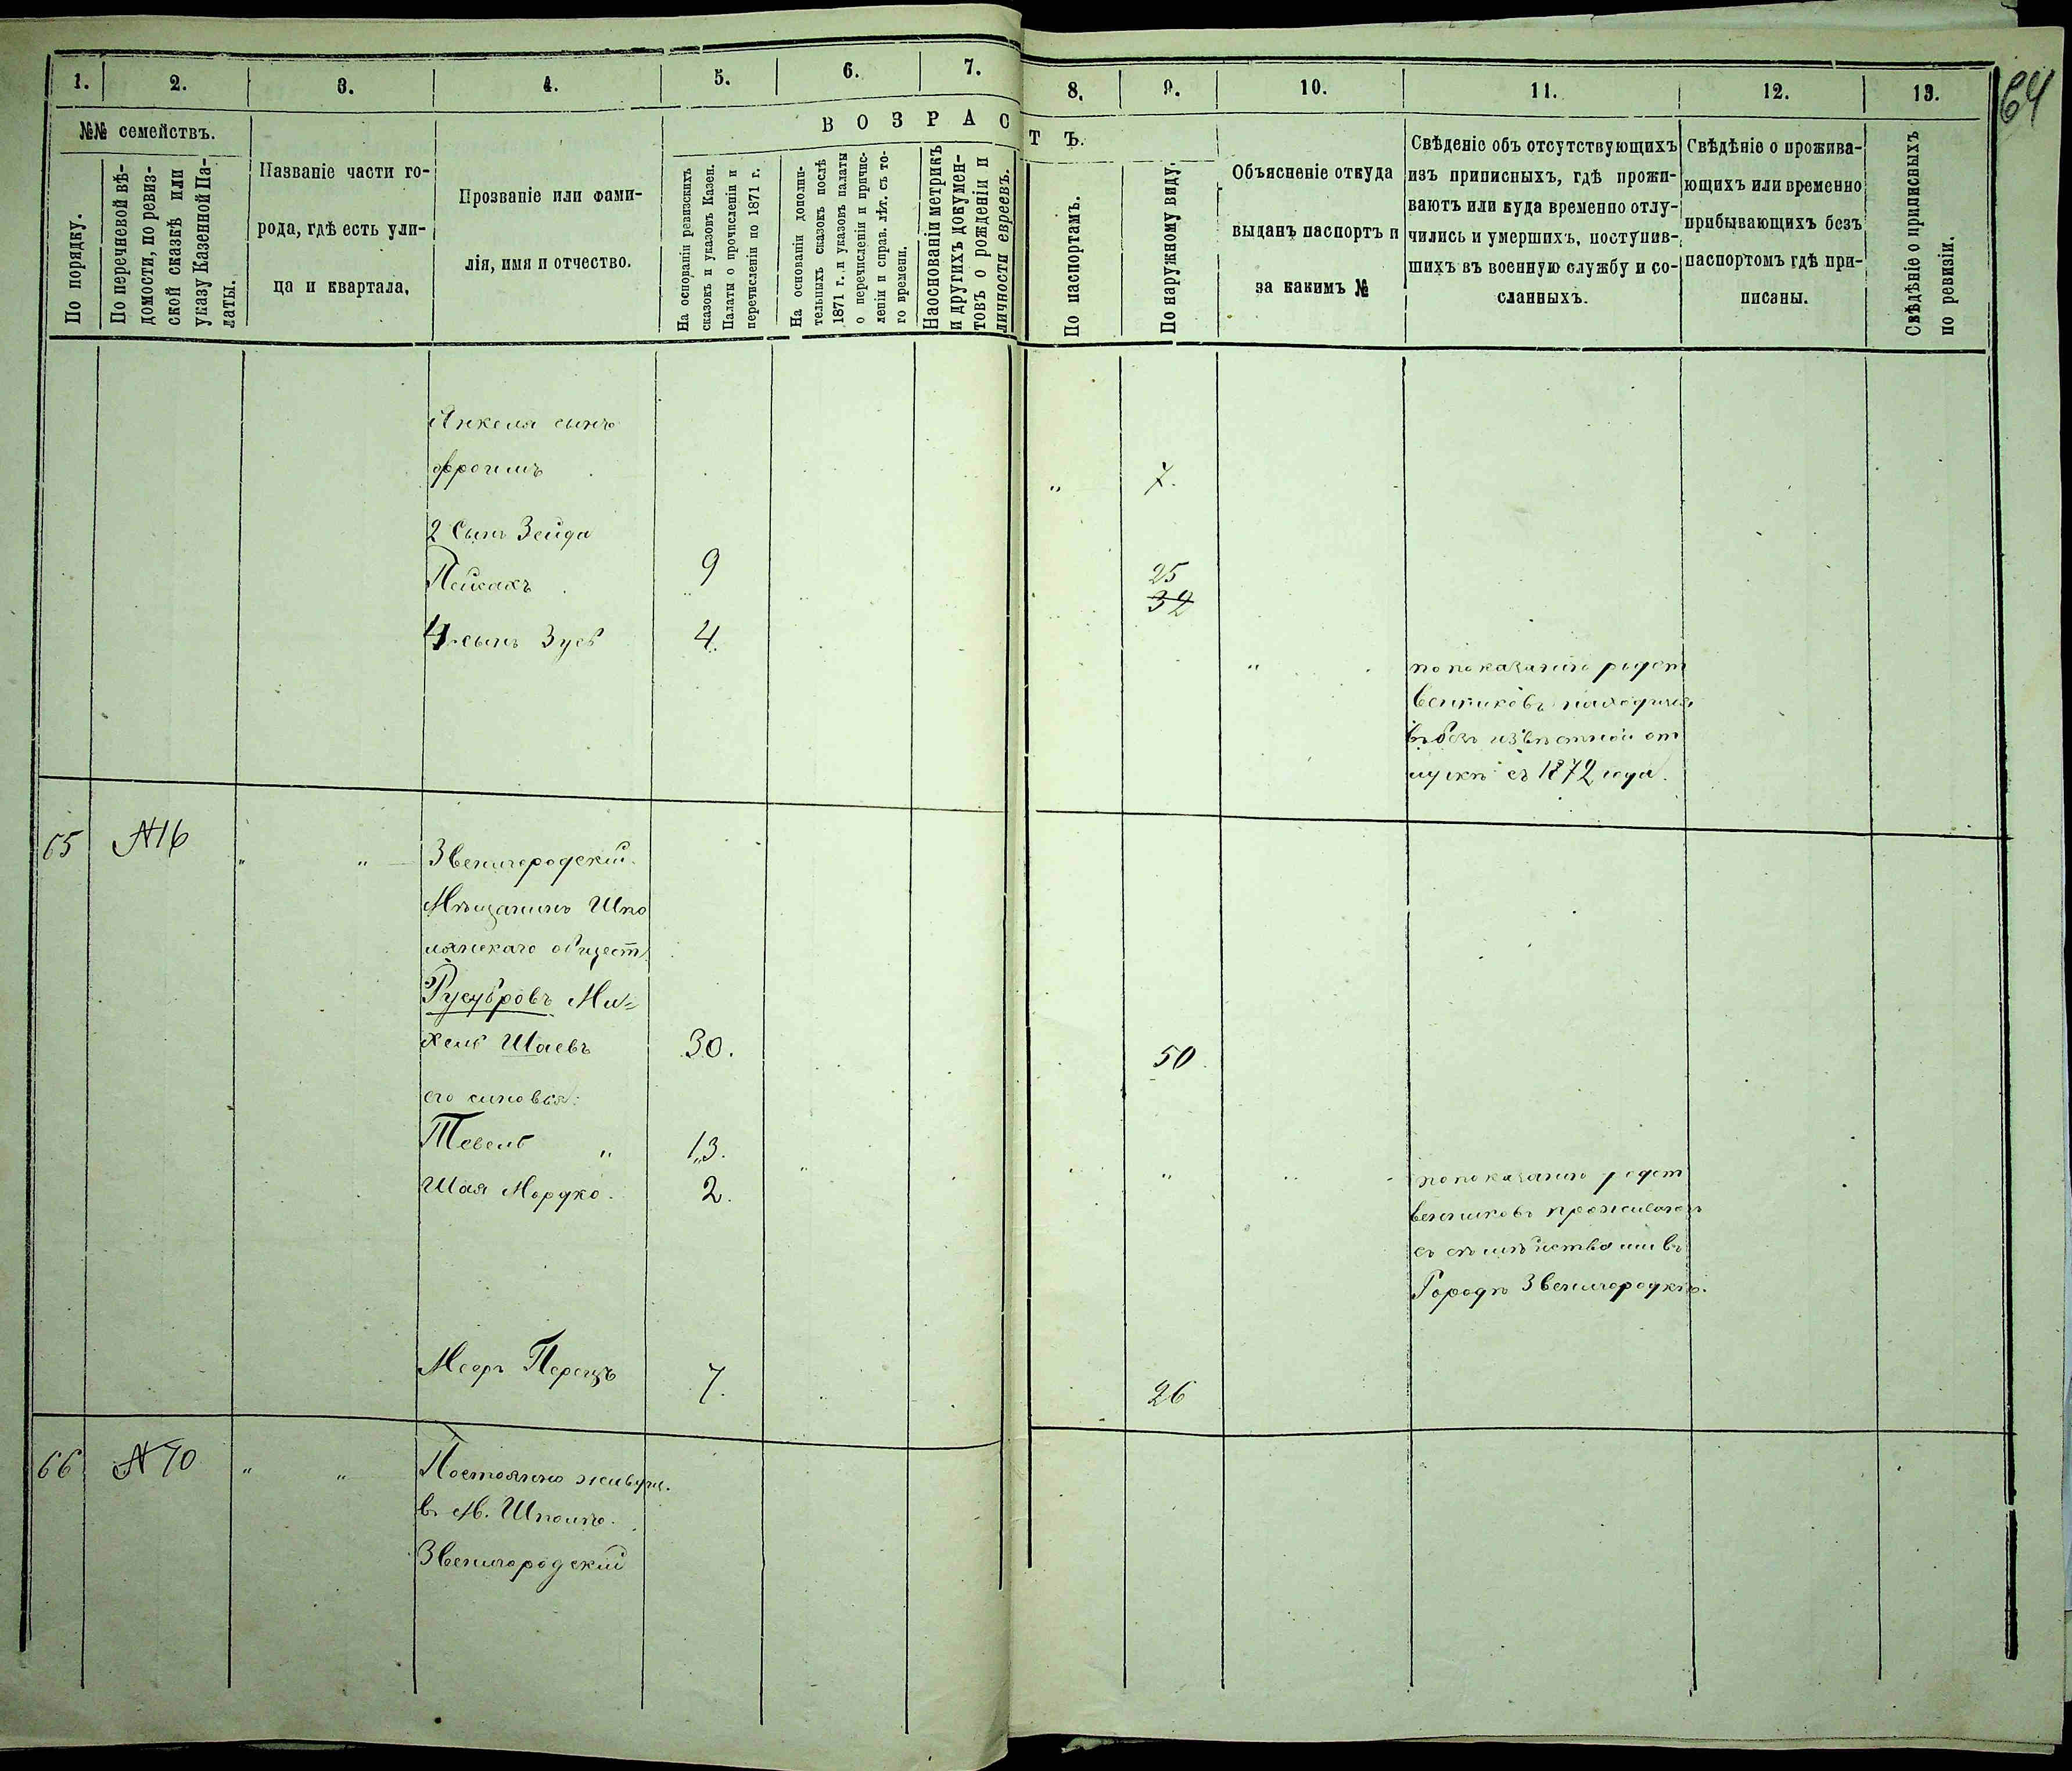 64
1. 2. 3. 4. 5. 6. 7. 8. 9. 10. 11. 12. 13.
№№ семействъ.
По порядку.
По перечневой вѣ-
домости, по ревиз-
ской сказкѣ или
указу Казенной Па-
латы.
Названіе части го-
рода, гдѣ есть ули-
ца и квартала.
Прозваніе или фами-
лія, имя и отчество.
ВОЗРАСТЪ.
На основаніи ревизскихъ
сказокъ и указовъ Казен.
Палаты о прочисленіи и
перечисленіи по 1871 г.
На основаніи дополни-
тельныхъ сказокъ послѣ
1871 г. и указовъ палаты
о перечисленіи и причис-
леніи и справ. лѣт. съ то-
го времени.
Наоснованіи метрикъ
и другихъ докумен-
товъ о рожденіи и
личности евреевъ.
По паспортамъ.
По наружному виду.
Объясненіе откуда
выданъ паспортъ и
за какимъ №
Свѣденіе объ отсутствующихъ
изъ приписныхъ, гдѣ прожи-
ваютъ или куда временно отлу-
чились и умершихъ, поступив-
шихъ въ военную службу и со-
сланныхъ.
Свѣдѣніе о прожива-
ющихъ или временно
прибывающихъ безъ
паспортомъ гдѣ при-
писаны.
Свѣдѣніе о приписныхъ
по ревизіи.
Янкеля сынъ
Фроимъ " 7.
2 Сынъ Зейда
Пейсахъ 9 25
32
4 сынъ Зусь 4. "
по показанію родст
венниковъ находится
въ безъ извѣстной от
лучкѣ съ 1872 года.
65 №16 " " Звенигородскій
Мѣщанинъ Шпо
лянскаго общест
Ми=
хель Шаевъ 30. 50
его сыновья:
Тевель " 13.
Шая Мордко. 2.
по показанію родст
венниковъ проживаютъ
съ семѣйствами въ
Городѣ Звенигородкѣ.
Мееръ Перецъ 7. 26
66 №70 " " Постоянно живущ.
в. М. Шполѣ.
Звенигородскій